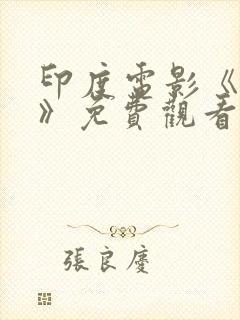 印度電影《
》免費觀看
張良慶